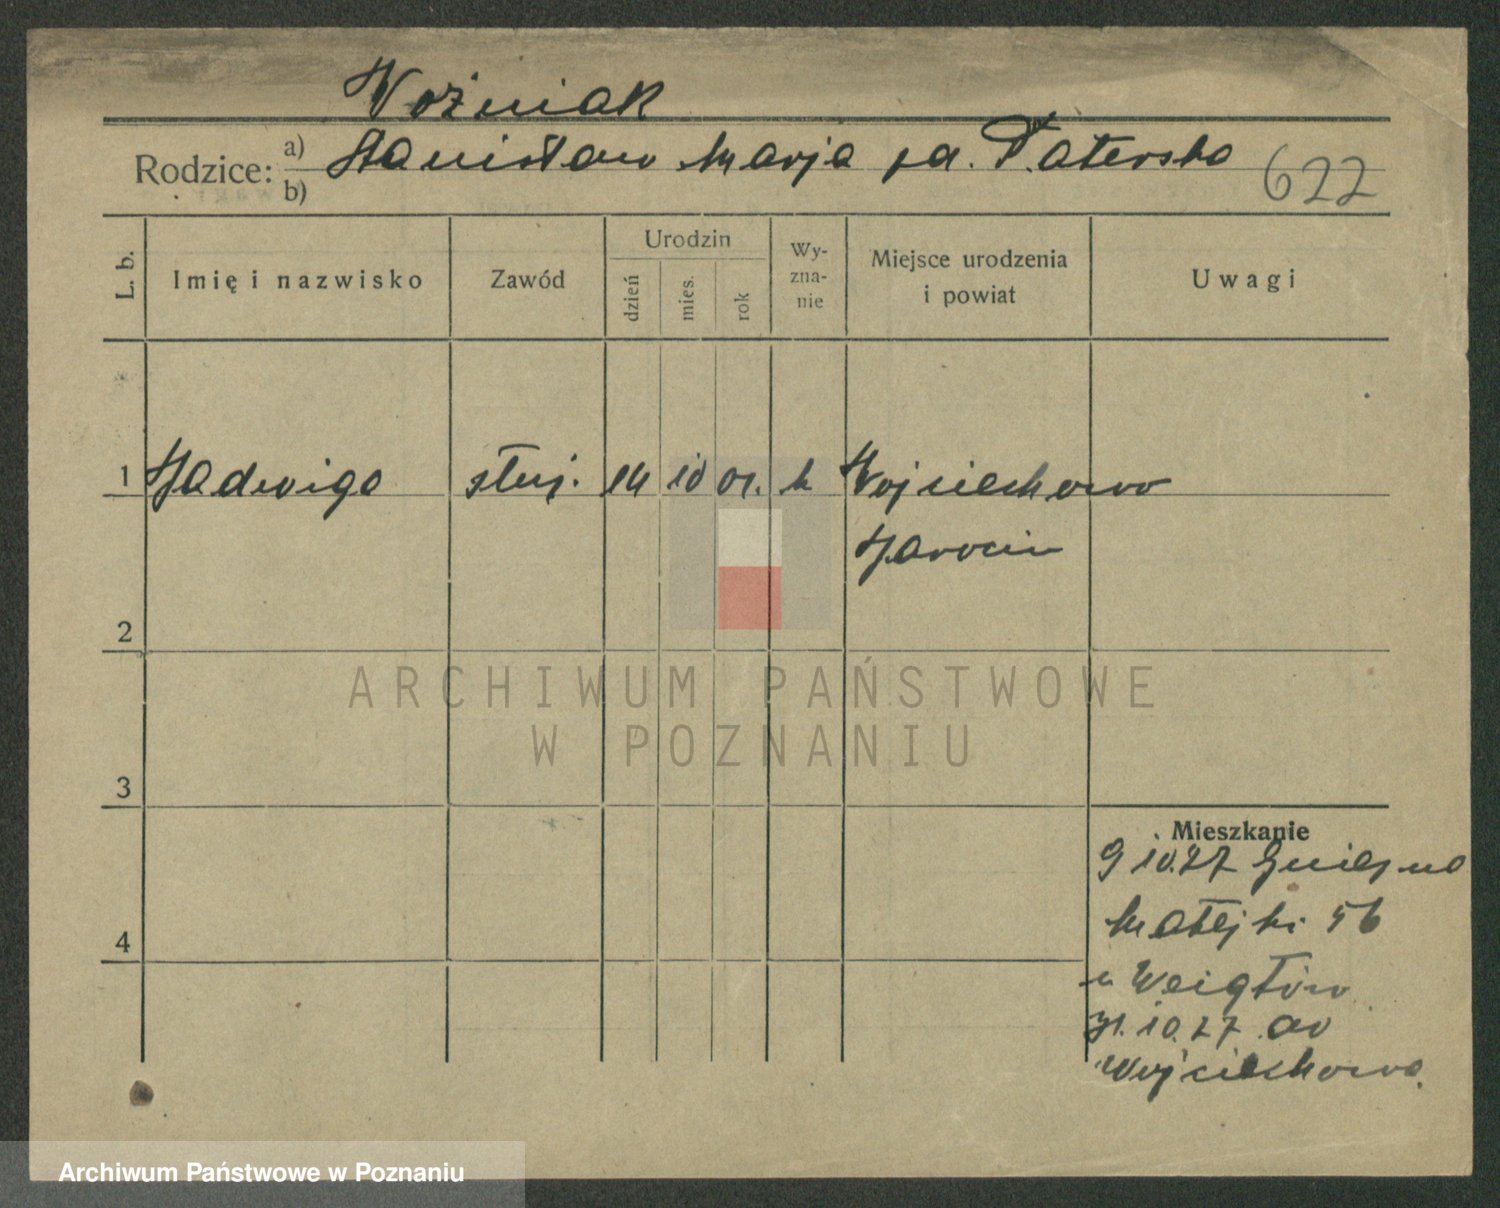 Woźniak
Rodzice: a) Stanisław Marja
b)
622
L. b.
Imię i nazwisko
Zawód
Urodzin
dzień
mies.
rok
Wy-
zna-
nie
Miejsce urodzenia
i powiat
Uwagi
1 Jadwiga służ. 14 10 01. k Wojciechowo
Jarocin
2
3
4
Mieszkanie
9 10.27 Gniezno
Matejki 56
u Weigtów
31.10.27 do
Wojciechowo.
ARCHIWUM PAŃSTWOWE
W POZNANIU
Archiwum Państwowe w Poznaniu